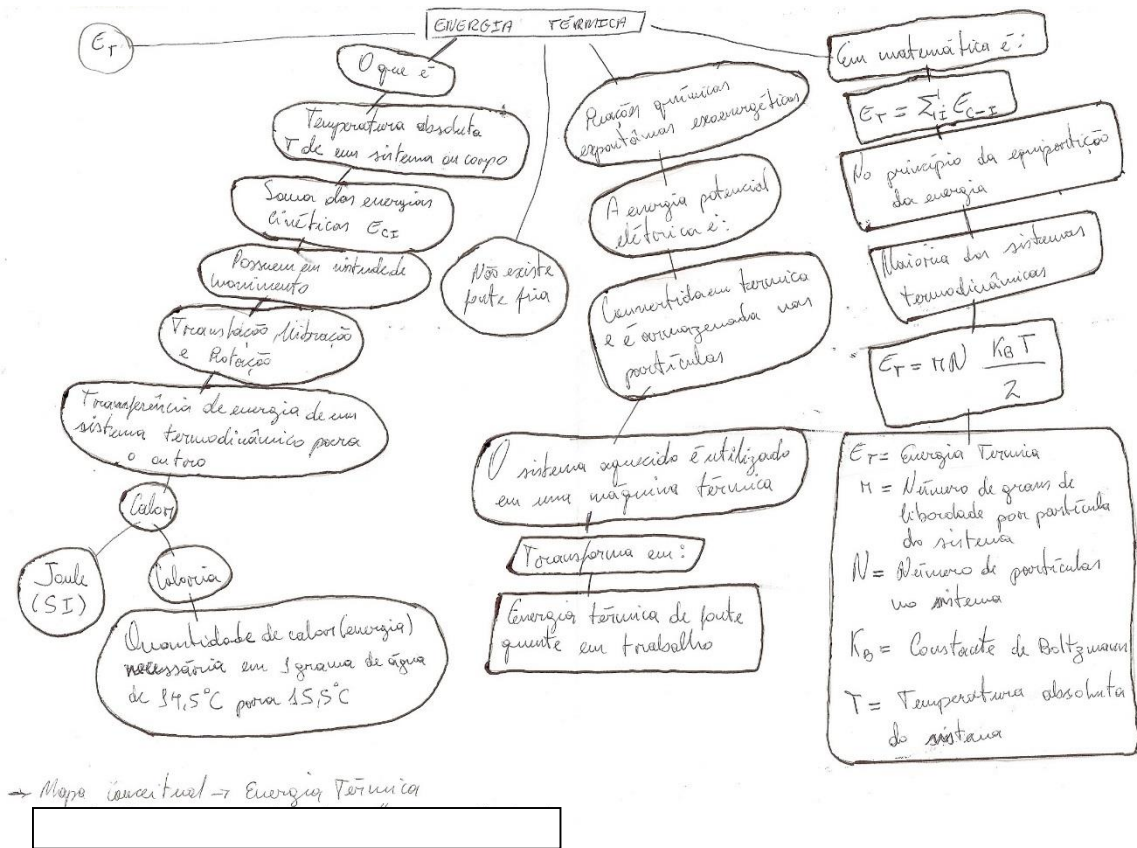 ENERGIA TÉRMICA
E_T
O que é
Temperatura absoluta
T de um sistema ou corpo
Soma das energias
Cinéticas E_CI
Possuem em virtude de
movimento
Translação, Vibração
e Rotação
Transferência de energia de um
sistema termodinâmico para
o outro
Calor
Joule
(SI)
Caloria
Quantidade de calor (energia)
necessária em 1 grama de água
de 14,5°C para 15,5°C
Não existe
fonte fria
Reações químicas
espontâneas exoenergéticas
A energia potencial
elétrica é:
Convertida em termica
e é armazenada nas
partículas
O sistema aquecido é utilizado
em uma máquina térmica
Transforma em:
Energia térmica de fonte
quente em trabalho
Em matemática é:
E_T = Σ_I E_C-I
No princípio da equipartição
da energia
Maioria dos sistemas
termodinâmicos
E_T = nN K_B T / 2
E_T = Energia Termica
n = Número de graus de
liberdade por partícula
do sistema
N = Número de partículas
no sistema
K_B = Constante de Boltzmann
T = Temperatura absoluta
do sistema
→ Mapa conceitual → Energia Térmica